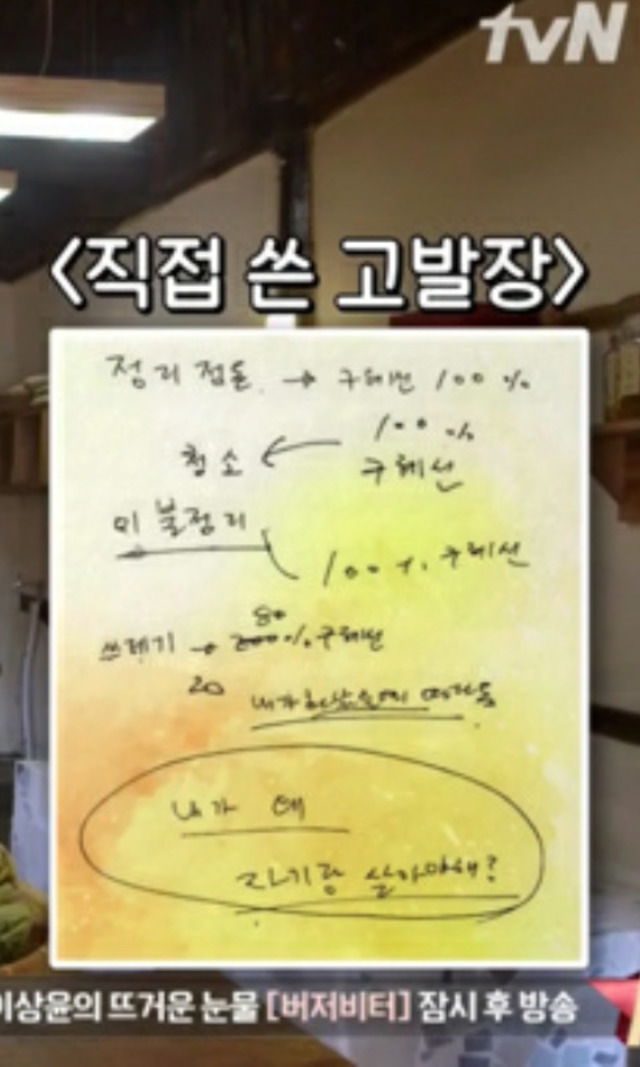 tvN
<직접 쓴 고발장>
정리정돈 → 구혜선 100%
100%
청소 ← 구혜선
이불정리
100% 구혜선
80
쓰레기 → 200% 구혜선
20 내가
내가 왜
자기랑 살아야해?
이상윤의 뜨거운 눈물 [버저비터] 잠시 후 방송